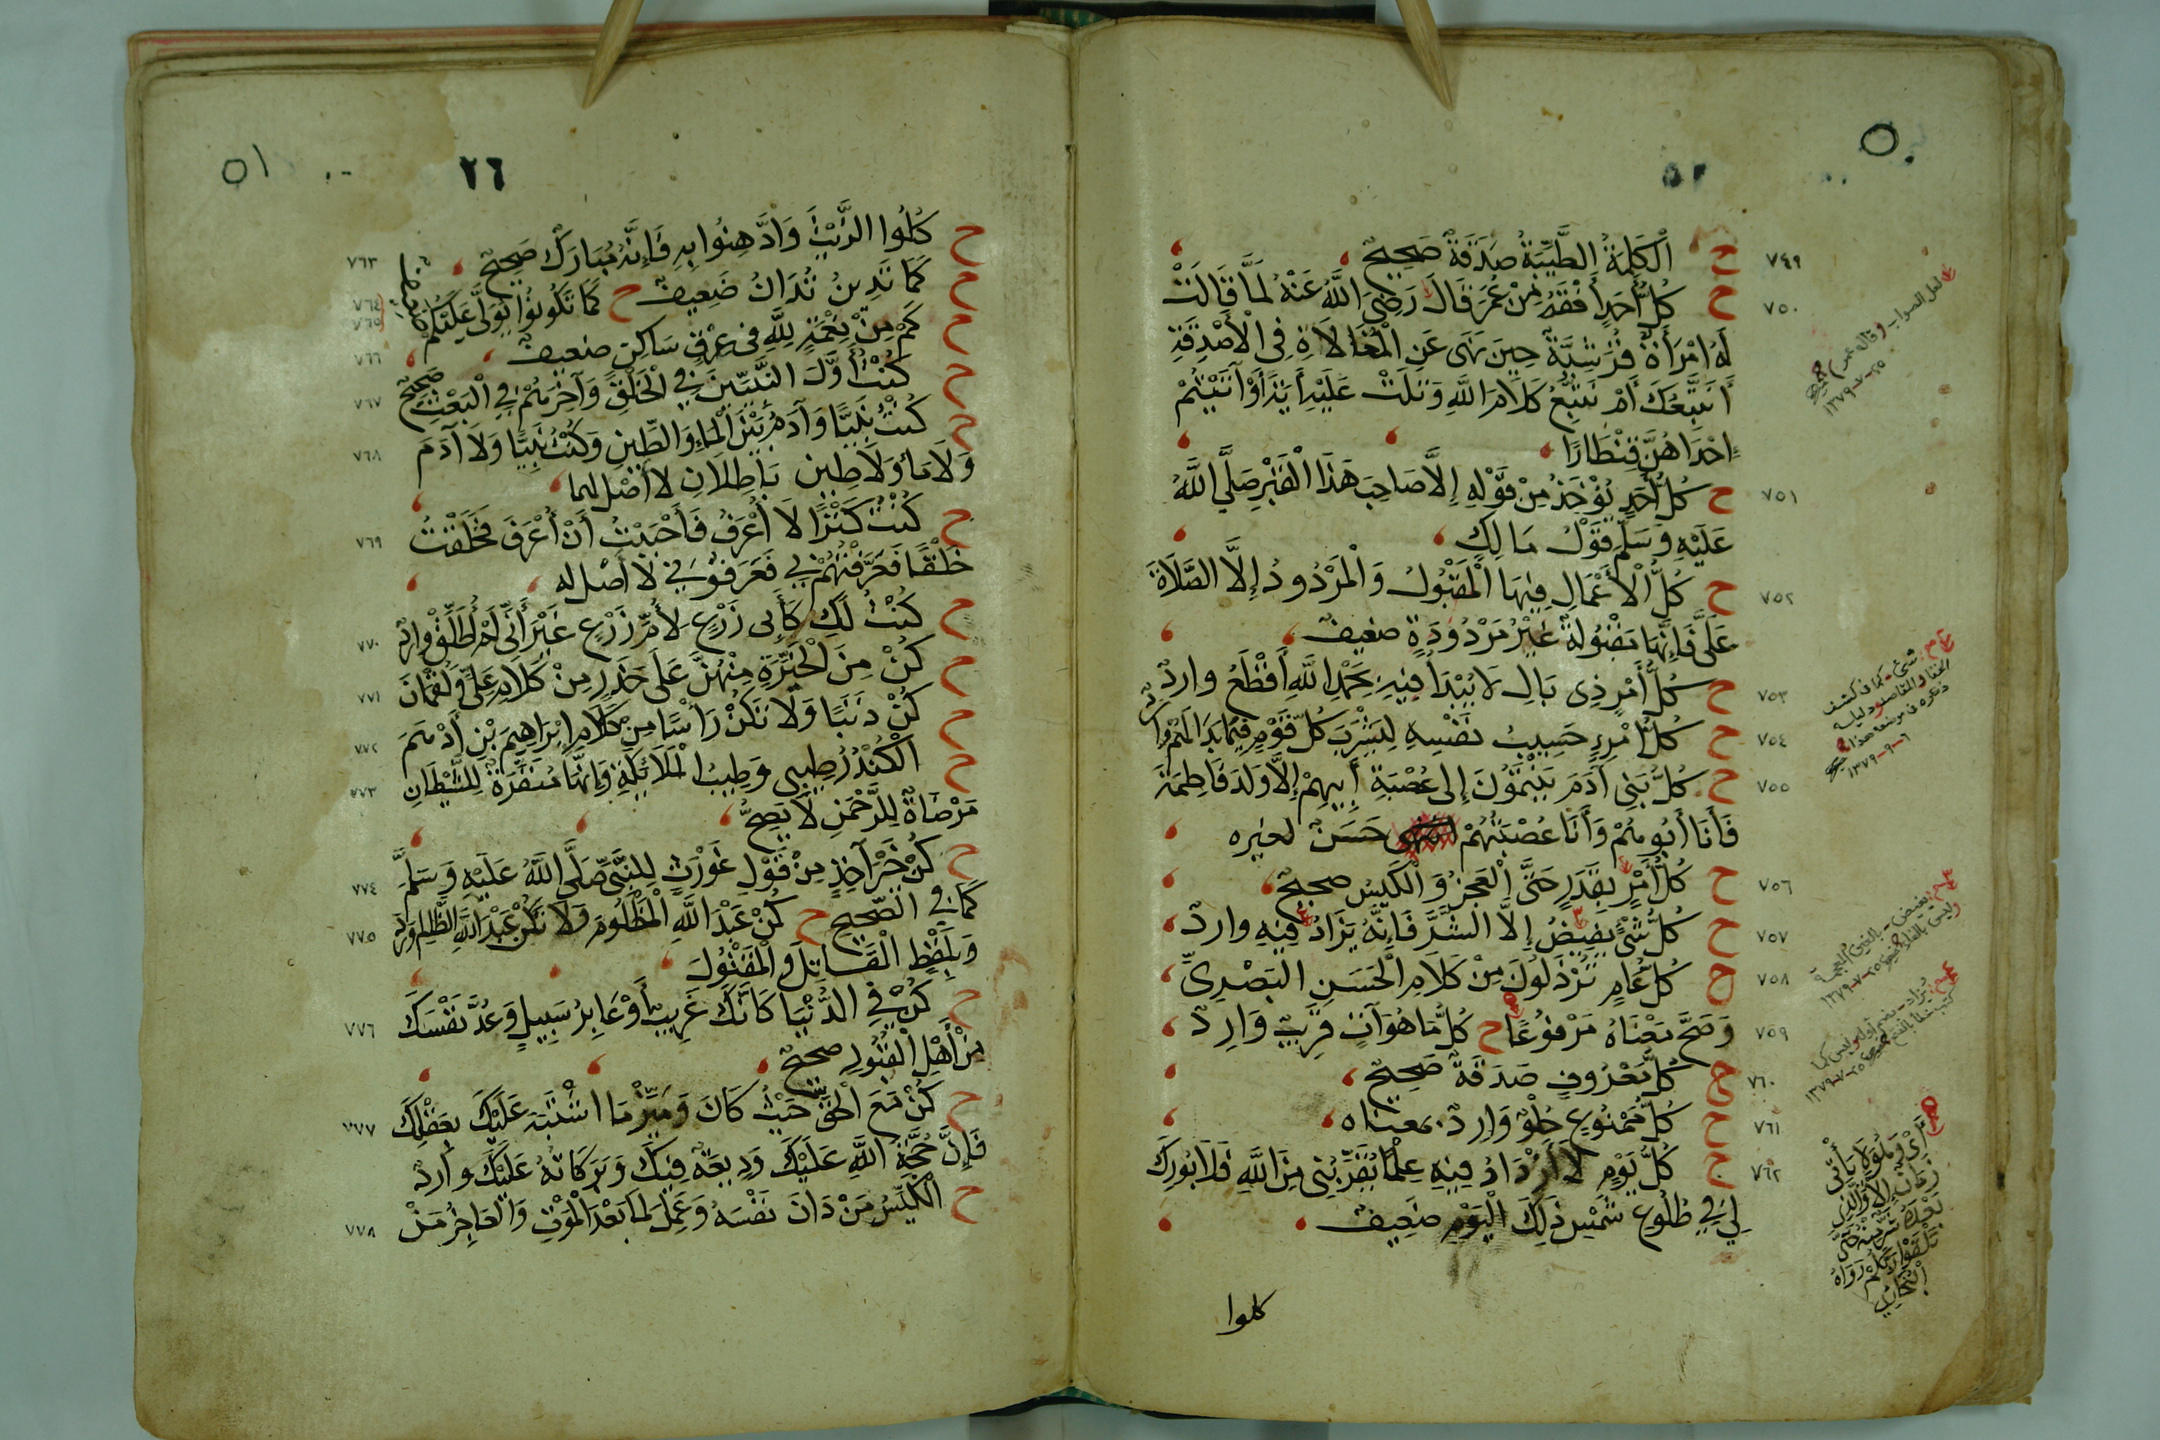 ٧٤٩ ح الْكَلِمَةُ الطَّيِّبَةُ صَدَقَةٌ صَحِيحٌ
٧٥٠ ح كُلُّ أَحَدٍ أَفْقَهُ مِنْ عُمَرَ قَالَ رَضِيَ اللَّهُ عَنْهُ لَمَّا قَالَتْ
لَهُ امْرَأَةٌ قُرَشِيَّةٌ حِينَ نَهَى عَنِ الْمُغَالَاةِ فِي الْأَصْدِقَةِ
أَنَتَّبِعُكَ أَمْ نَتَّبِعُ كَلَامَ اللَّهِ وَتَلَتْ عَلَيْهِ أَوْ آتَيْتُمْ
إِحْدَاهُنَّ قِنْطَارًا
٧٥١ ح كُلُّ أَحَدٍ يُؤْخَذُ مِنْ قَوْلِهِ إِلَّا صَاحِبَ هَذَا الْقَبْرِ صَلَّى اللَّهُ
عَلَيْهِ وَسَلَّمَ قَوْلُ مَالِكٍ
٧٥٢ ح كُلُّ الْأَعْمَالِ فِيهَا الْمَقْبُولُ وَالْمَرْدُودُ إِلَّا الصَّلَاةَ
عَلَيَّ فَإِنَّهَا مَقْبُولَةٌ غَيْرُ مَرْدُودَةٍ ضعيف
٧٥٣ ح كُلُّ أَمْرٍ ذِي بَالٍ لَا يُبْدَأُ فِيهِ بِحَمْدِ اللَّهِ أَقْطَعُ وارد
٧٥٤ ح كُلُّ امْرِءٍ حَسِيبُ نَفْسِهِ لِيَشْرَبْ كُلُّ قَوْمٍ فِيمَا بَدَا لَهُمْ وارد
٧٥٥ ح كُلُّ بَنِي آدَمَ يَنْتَمُونَ إِلَى عُصْبَةِ أَبِيهِمْ إِلَّا وَلَدَ فَاطِمَةَ
فَأَنَا أَبُوهُمْ وَأَنَا عُصْبَتُهُمْ حَسَنٌ لغيره
٧٥٦ ح كُلُّ أَمْرٍ بِقَدَرٍ حَتَّى الْعَجْزُ وَالْكَيْسُ صحيح
٧٥٧ ح كُلُّ شَيْءٍ يَفِيضُ إِلَّا الشَّرَّ فَإِنَّهُ يُزَادُ فِيهِ وارد
٧٥٨ ح كُلُّ عَامٍ تُرْذَلُونَ مِنْ كَلَامِ الْحَسَنِ الْبَصْرِيِّ
٧٥٩ وَصَحَّ مَعْنَاهُ مَرْفُوعًا ح كُلُّ مَا هُوَ آتٍ قَرِيبٌ وَارِدٌ
٧٦٠ ح كُلُّ مَعْرُوفٍ صَدَقَةٌ صَحِيحٌ
٧٦١ ح كُلُّ مَمْنُوعٍ حُلْوٌ وَارِدٌ بمعناه
٧٦٢ ح كُلُّ يَوْمٍ لَا أَزْدَادُ فِيهِ عِلْمًا يُقَرِّبُنِي مِنَ اللَّهِ فَلَا بُورِكَ
لِي فِي طُلُوعِ شَمْسِ ذَلِكَ الْيَوْمِ ضَعِيفٌ
كلوا
لعل الصواب (وقال عمر)
١٣٧٩-٧-٢٥
١٣٧٩-٩-٦
يغيض - بالغين المعجمة
وليس بالفاء
١٣٧٩-٧-٢٥
١٣٧٩-٧-٢٥
أَيْ وَلِقَوْلِهِ لَا يَأْتِي
زَمَانٌ إِلَّا وَالَّذِي
بَعْدَهُ شَرٌّ مِنْهُ حَتَّى
تَلْقَوْا رَبَّكُمْ رَوَاهُ
الْبُخَارِيُّ
٥١ ٢٦
ح كُلُوا الزَّيْتَ وَادَّهِنُوا بِهِ فَإِنَّهُ مُبَارَكٌ صَحِيحٌ ٧٦٣
ح كَمَا تَدِينُ تُدَانُ ضَعِيفٌ ح كَمَا تَكُونُوا يُوَلَّى عَلَيْكُمْ ٧٦٤ ٧٦٥
ح كَمْ مِنْ نِعْمَةٍ لِلَّهِ فِي عِرْقٍ سَاكِنٍ ضعيف ٧٦٦
ح كُنْتُ أَوَّلَ النَّبِيِّينَ فِي الْخَلْقِ وَآخِرَهُمْ فِي الْبَعْثِ صَحِيحٌ ٧٦٧
ح كُنْتُ نَبِيًّا وَآدَمُ بَيْنَ الْمَاءِ وَالطِّينِ وَكُنْتُ نَبِيًّا وَلَا آدَمَ ٧٦٨
وَلَا مَاءَ وَلَا طِينَ بَاطِلَانِ لَا أَصْلَ لهما
ح كُنْتُ كَنْزًا لَا أُعْرَفُ فَأَحْبَبْتُ أَنْ أُعْرَفَ فَخَلَقْتُ ٧٦٩
خَلْقًا فَعَرَّفْتُهُمْ بِي فَعَرَفُونِي لَا أَصْلَ له
ح كُنْتُ لَكِ كَأَبِي زَرْعٍ لِأُمِّ زَرْعٍ غَيْرَ أَنِّي لَمْ أُطَلِّقْ وارد ٧٧٠
ح كُنْ مِنَ الْخَيِّرَةِ مِنْهُنَّ عَلَى حَذَرٍ مِنْ كَلَامِ عَلِيٍّ وَلُقْمَانَ ٧٧١
ح كُنْ ذَنَبًا وَلَا تَكُنْ رَأْسًا مِنْ كَلَامِ إِبْرَاهِيمَ بْنِ أَدْهَمَ ٧٧٢
ح الْكُنْدُرُ طِيبِي وَطِيبُ الْمَلَائِكَةِ وَإِنَّهَا مُنَفِّرَةٌ لِلشَّيْطَانِ ٧٧٣
مَرْضَاةٌ لِلرَّحْمَنِ لَا يَصِحُّ
ح كُنْ خَيْرَ آخِذٍ مِنْ قَوْلِ غَوْرَثٍ لِلنَّبِيِّ صَلَّى اللَّهُ عَلَيْهِ وَسَلَّمَ ٧٧٤
كَمَا فِي الصَّحِيحِ ح كُنْ عَبْدَ اللَّهِ الْمَظْلُومَ وَلَا تَكُنْ عَبْدَ اللَّهِ الظَّالِمَ وَرَدَ ٧٧٥
وَبِلَفْظِ الْقَاتِلَ وَالْمَقْتُولَ
ح كُنْ فِي الدُّنْيَا كَأَنَّكَ غَرِيبٌ أَوْ عَابِرُ سَبِيلٍ وَعُدَّ نَفْسَكَ ٧٧٦
مِنْ أَهْلِ الْقُبُورِ صحيح
ح كُنْ مَعَ الْحَقِّ حَيْثُ كَانَ وَمَيِّزْ مَا اشْتَبَهَ عَلَيْكَ بِعَقْلِكَ ٧٧٧
فَإِنَّ حُجَّةَ اللَّهِ عَلَيْكَ وَدِيعَةٌ فِيكَ وَبَرَكَاتُهُ عَلَيْكَ وارد
ح الْكَيِّسُ مَنْ دَانَ نَفْسَهُ وَعَمِلَ لِمَا بَعْدَ الْمَوْتِ وَالْعَاجِزُ مَنْ ٧٧٨